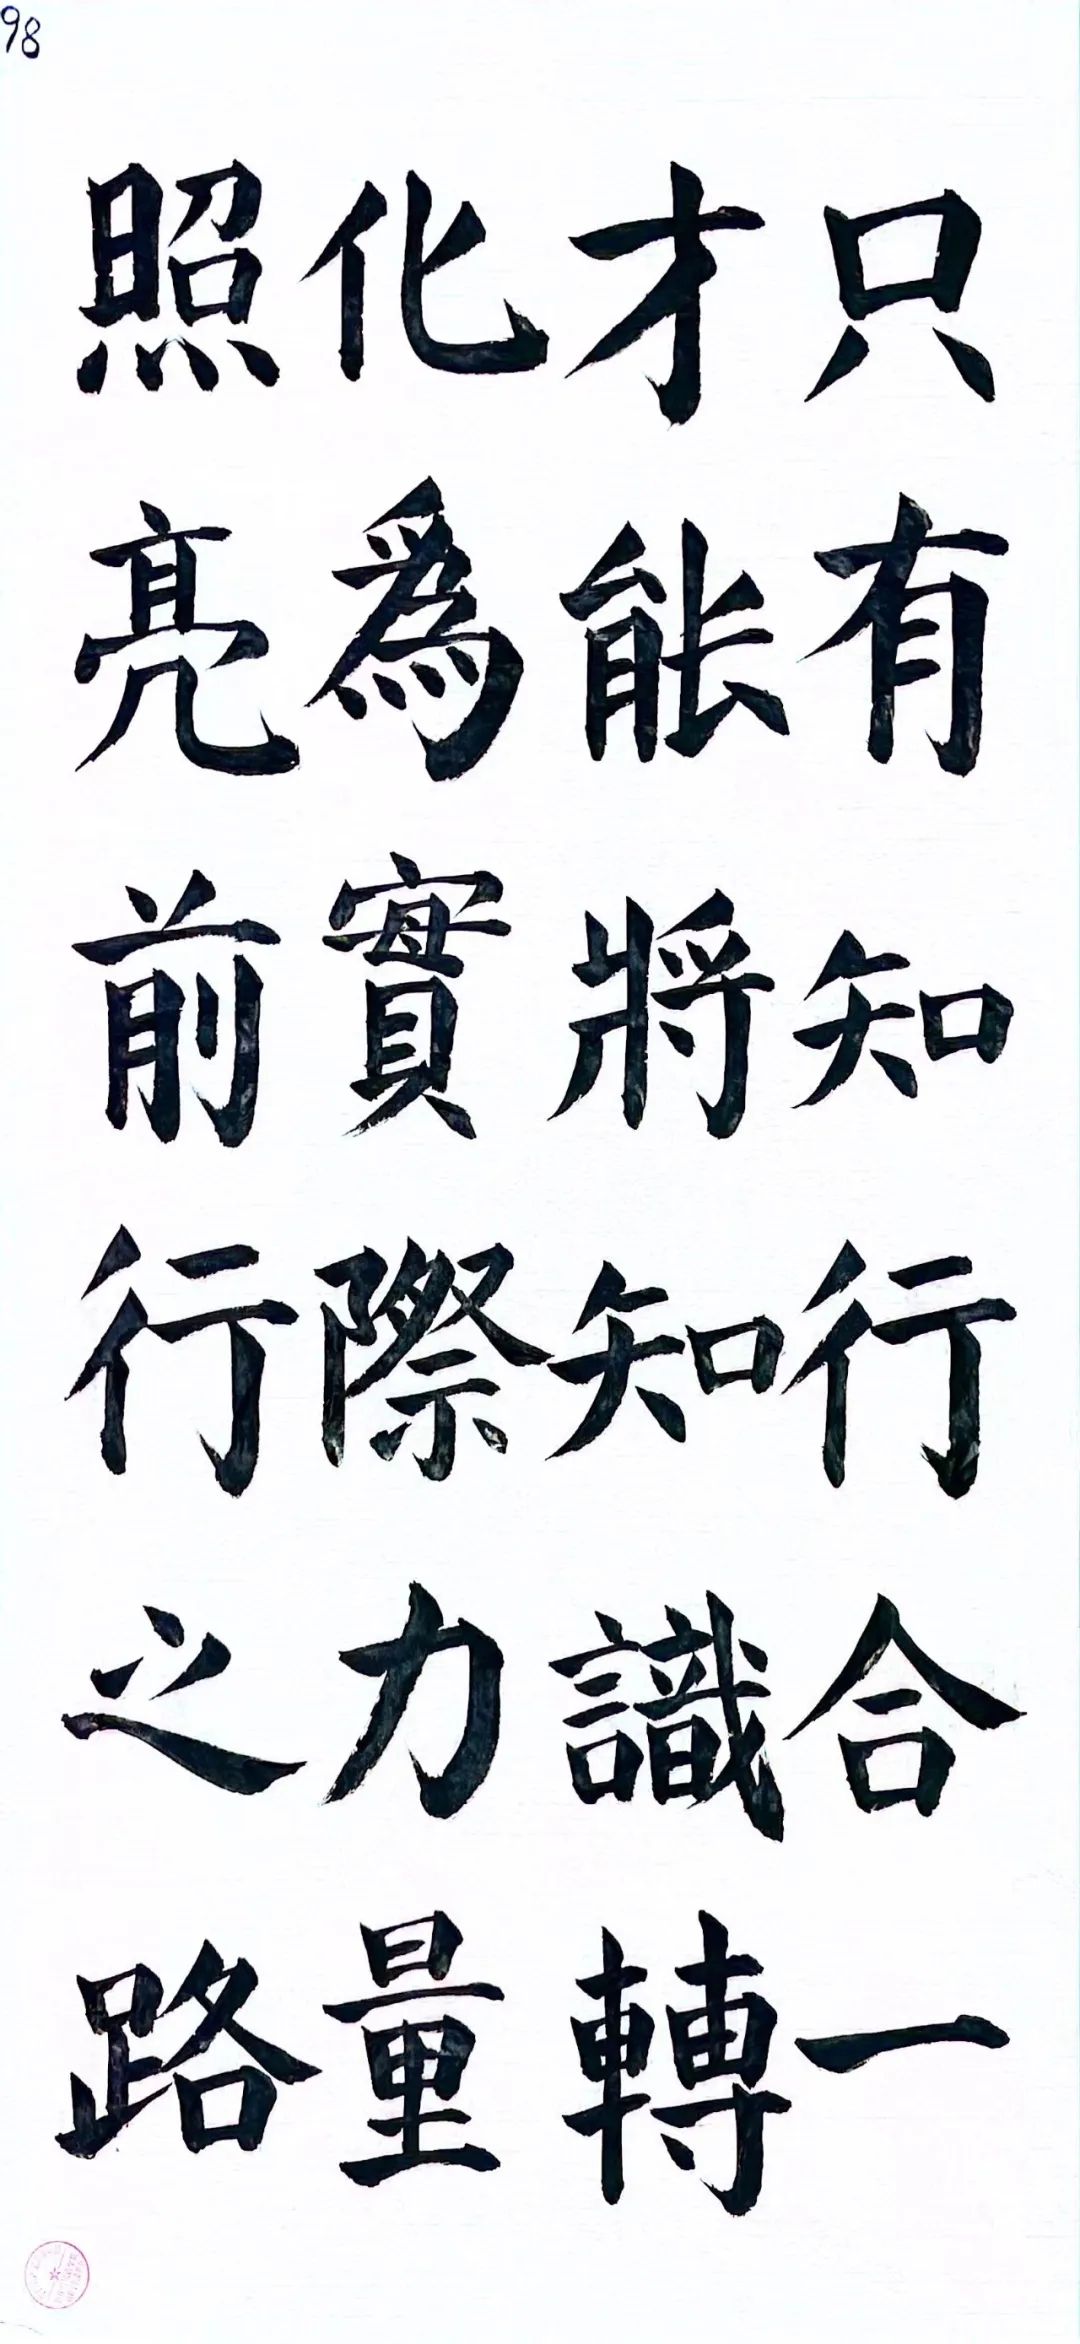 98
只有知行合一
才能將知識轉
化為實際力量
照亮前行之路